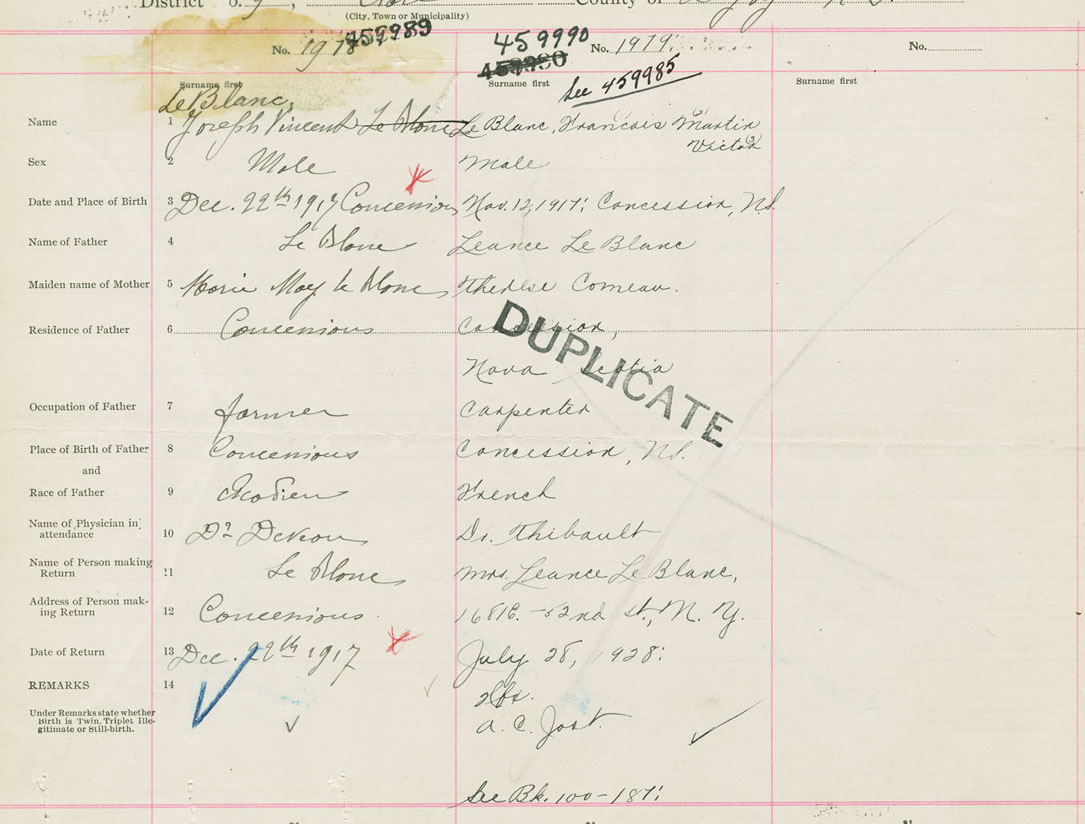 District
County of
(City, Town or Municipality)
No. 1978 459989
459990 No. 1979
459990
No.
Surname first
Surname first
See 459985
Surname first
Le Blanc,
Name 1 Joseph Vincent Le Blanc Le Blanc, Francois Martin
Victor
Sex 2 Male Male
Date and Place of Birth 3 Dec. 22th 1917 Concessions Nov. 12, 1917. Concession, N.S.
Name of Father 4 Le Blanc Leance Le Blanc
Maiden name of Mother 5 Marie May Le Blanc Therese Comeau.
Residence of Father 6 Concessions Concession,
Nova Scotia
DUPLICATE
Occupation of Father 7 farmer Carpenter
Place of Birth of Father 8 Concessions Concession, N.S.
and
Race of Father 9 Acadien French
Name of Physician in attendance 10 Dr Dr. Thibault
Name of Person making Return 11 Le Blanc Mrs. Leance Le Blanc,
Address of Person making Return 12 Concessions 168 E. - 52nd St., N. Y.
Date of Return 13 Dec. 22th 1917 July 28, 1928.
REMARKS 14
Under Remarks state whether
Birth is Twin, Triplet Ille-
gitimate or Still-birth.
A. C. Jost.
See Bk. 100-187.